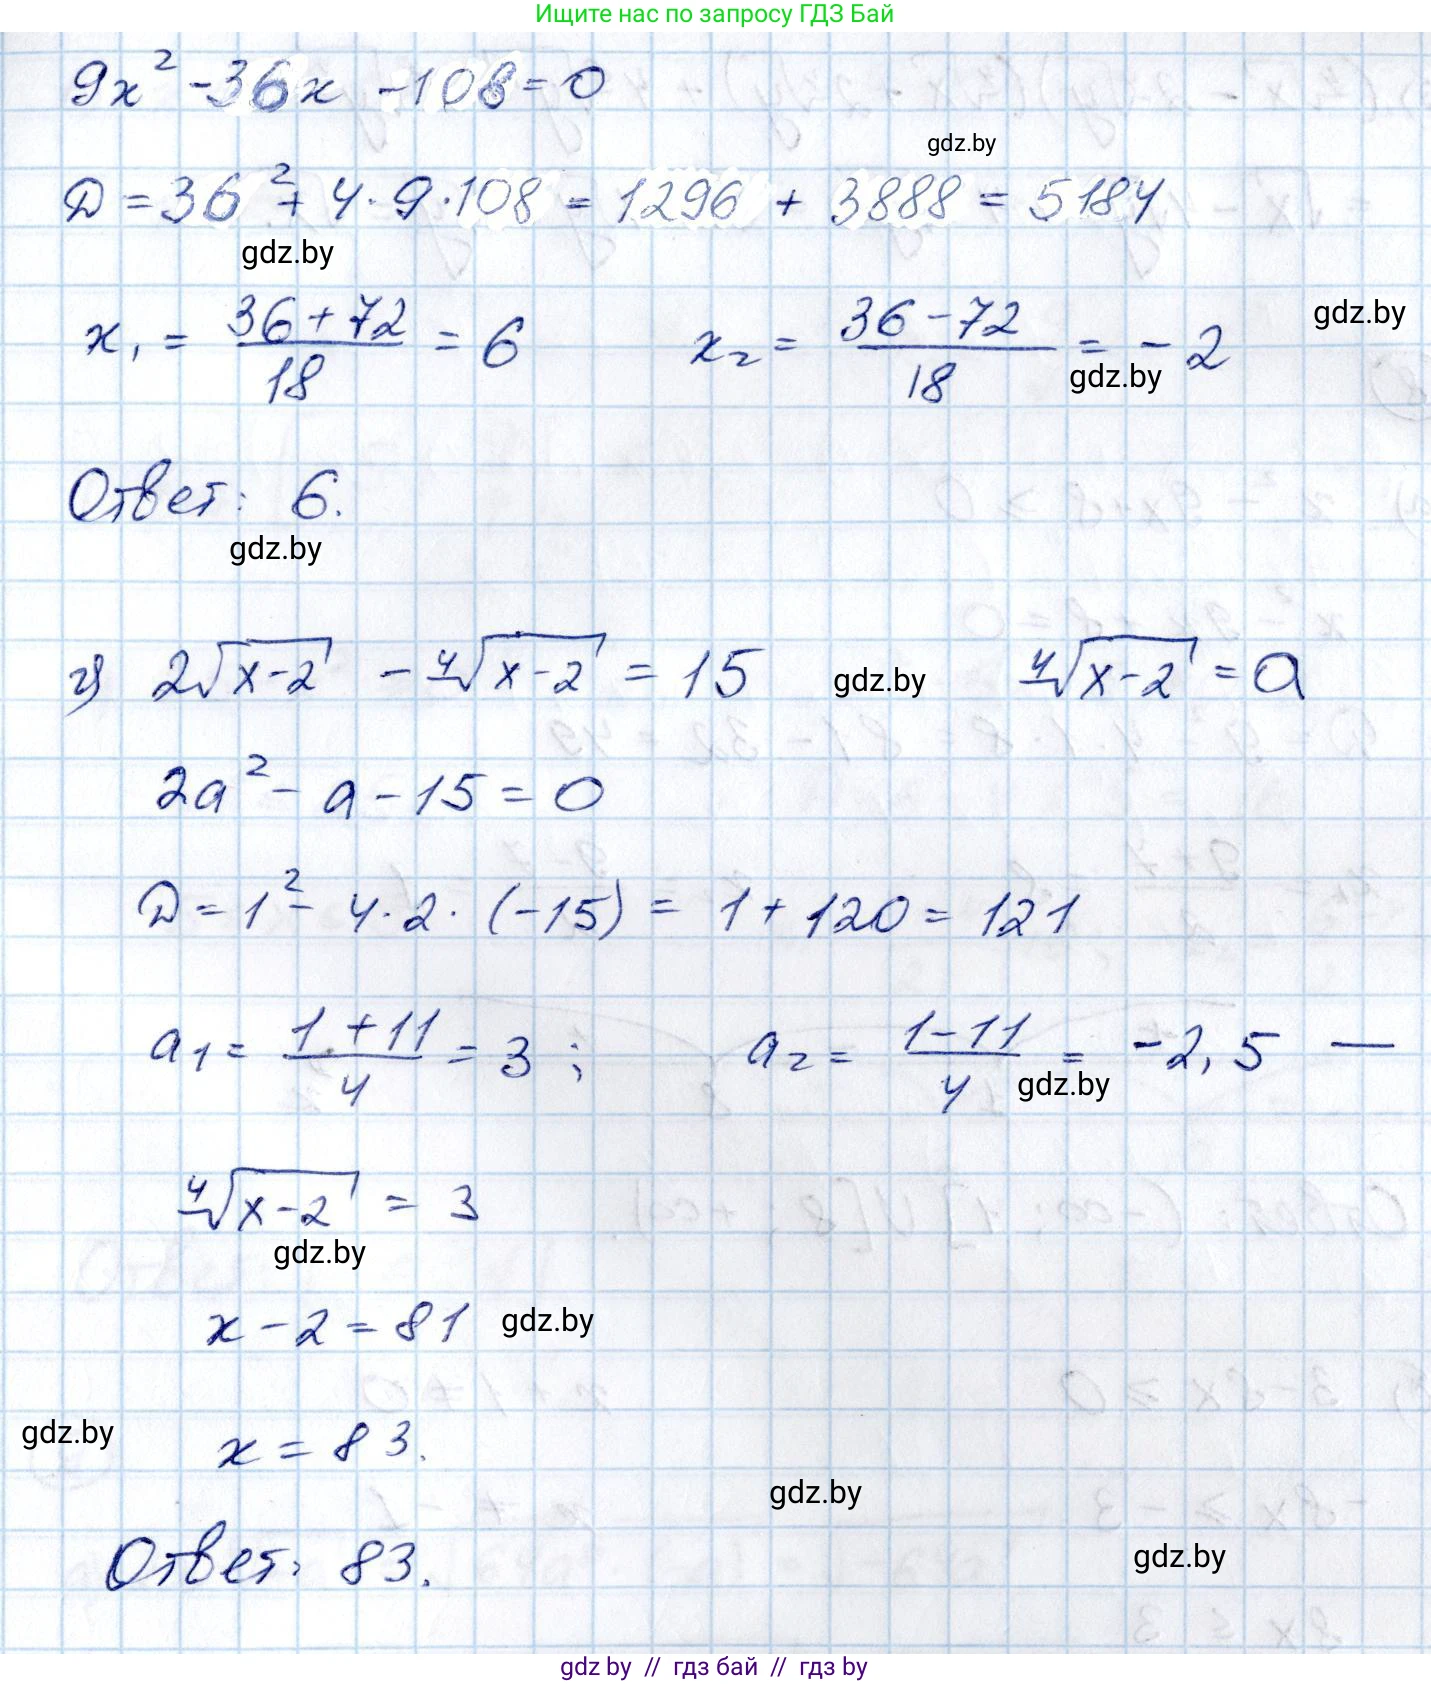 Ищите нас по запросу ГДЗ Бай
9x² - 36x - 108 = 0
gdz.by
D = 36² + 4·9·108 = 1296 + 3888 = 5184
gdz.by
x₁ = (36+72)/18 = 6   x₂ = (36-72)/18 = -2
gdz.by
gdz.by
Ответ: 6.
gdz.by
г) 2√(x-2) - ⁴√(x-2) = 15   gdz.by   ⁴√(x-2) = a
2a² - a - 15 = 0
D = 1² - 4·2·(-15) = 1 + 120 = 121
a₁ = (1+11)/4 = 3 ;   a₂ = (1-11)/4 = -2,5 —
gdz.by
⁴√(x-2) = 3
gdz.by
x - 2 = 81   gdz.by
gdz.by   x = 83.
gdz.by
gdz.by
Ответ: 83.
gdz by // гдз бай // гдз by